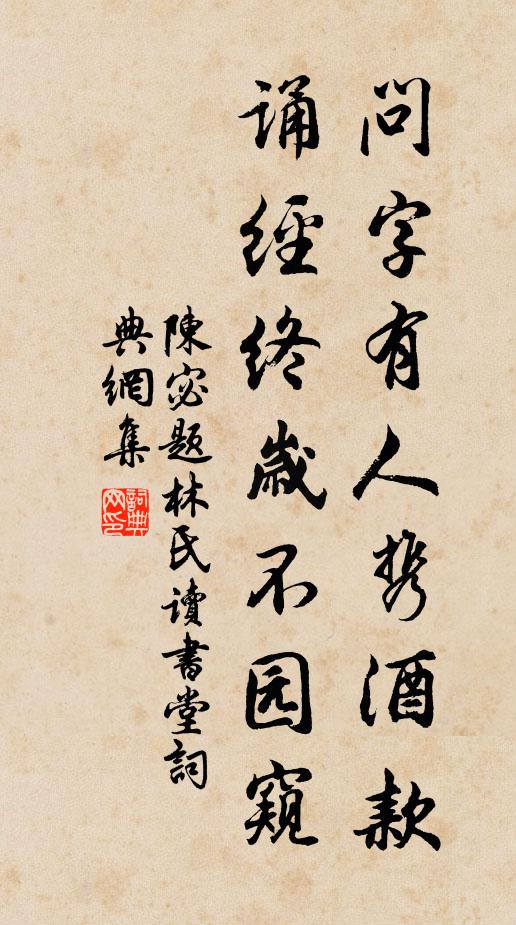 問字有人携酒款
誦經終歲不园窺
陳宓題林氏讀書堂詞
典網集
詞典
网印